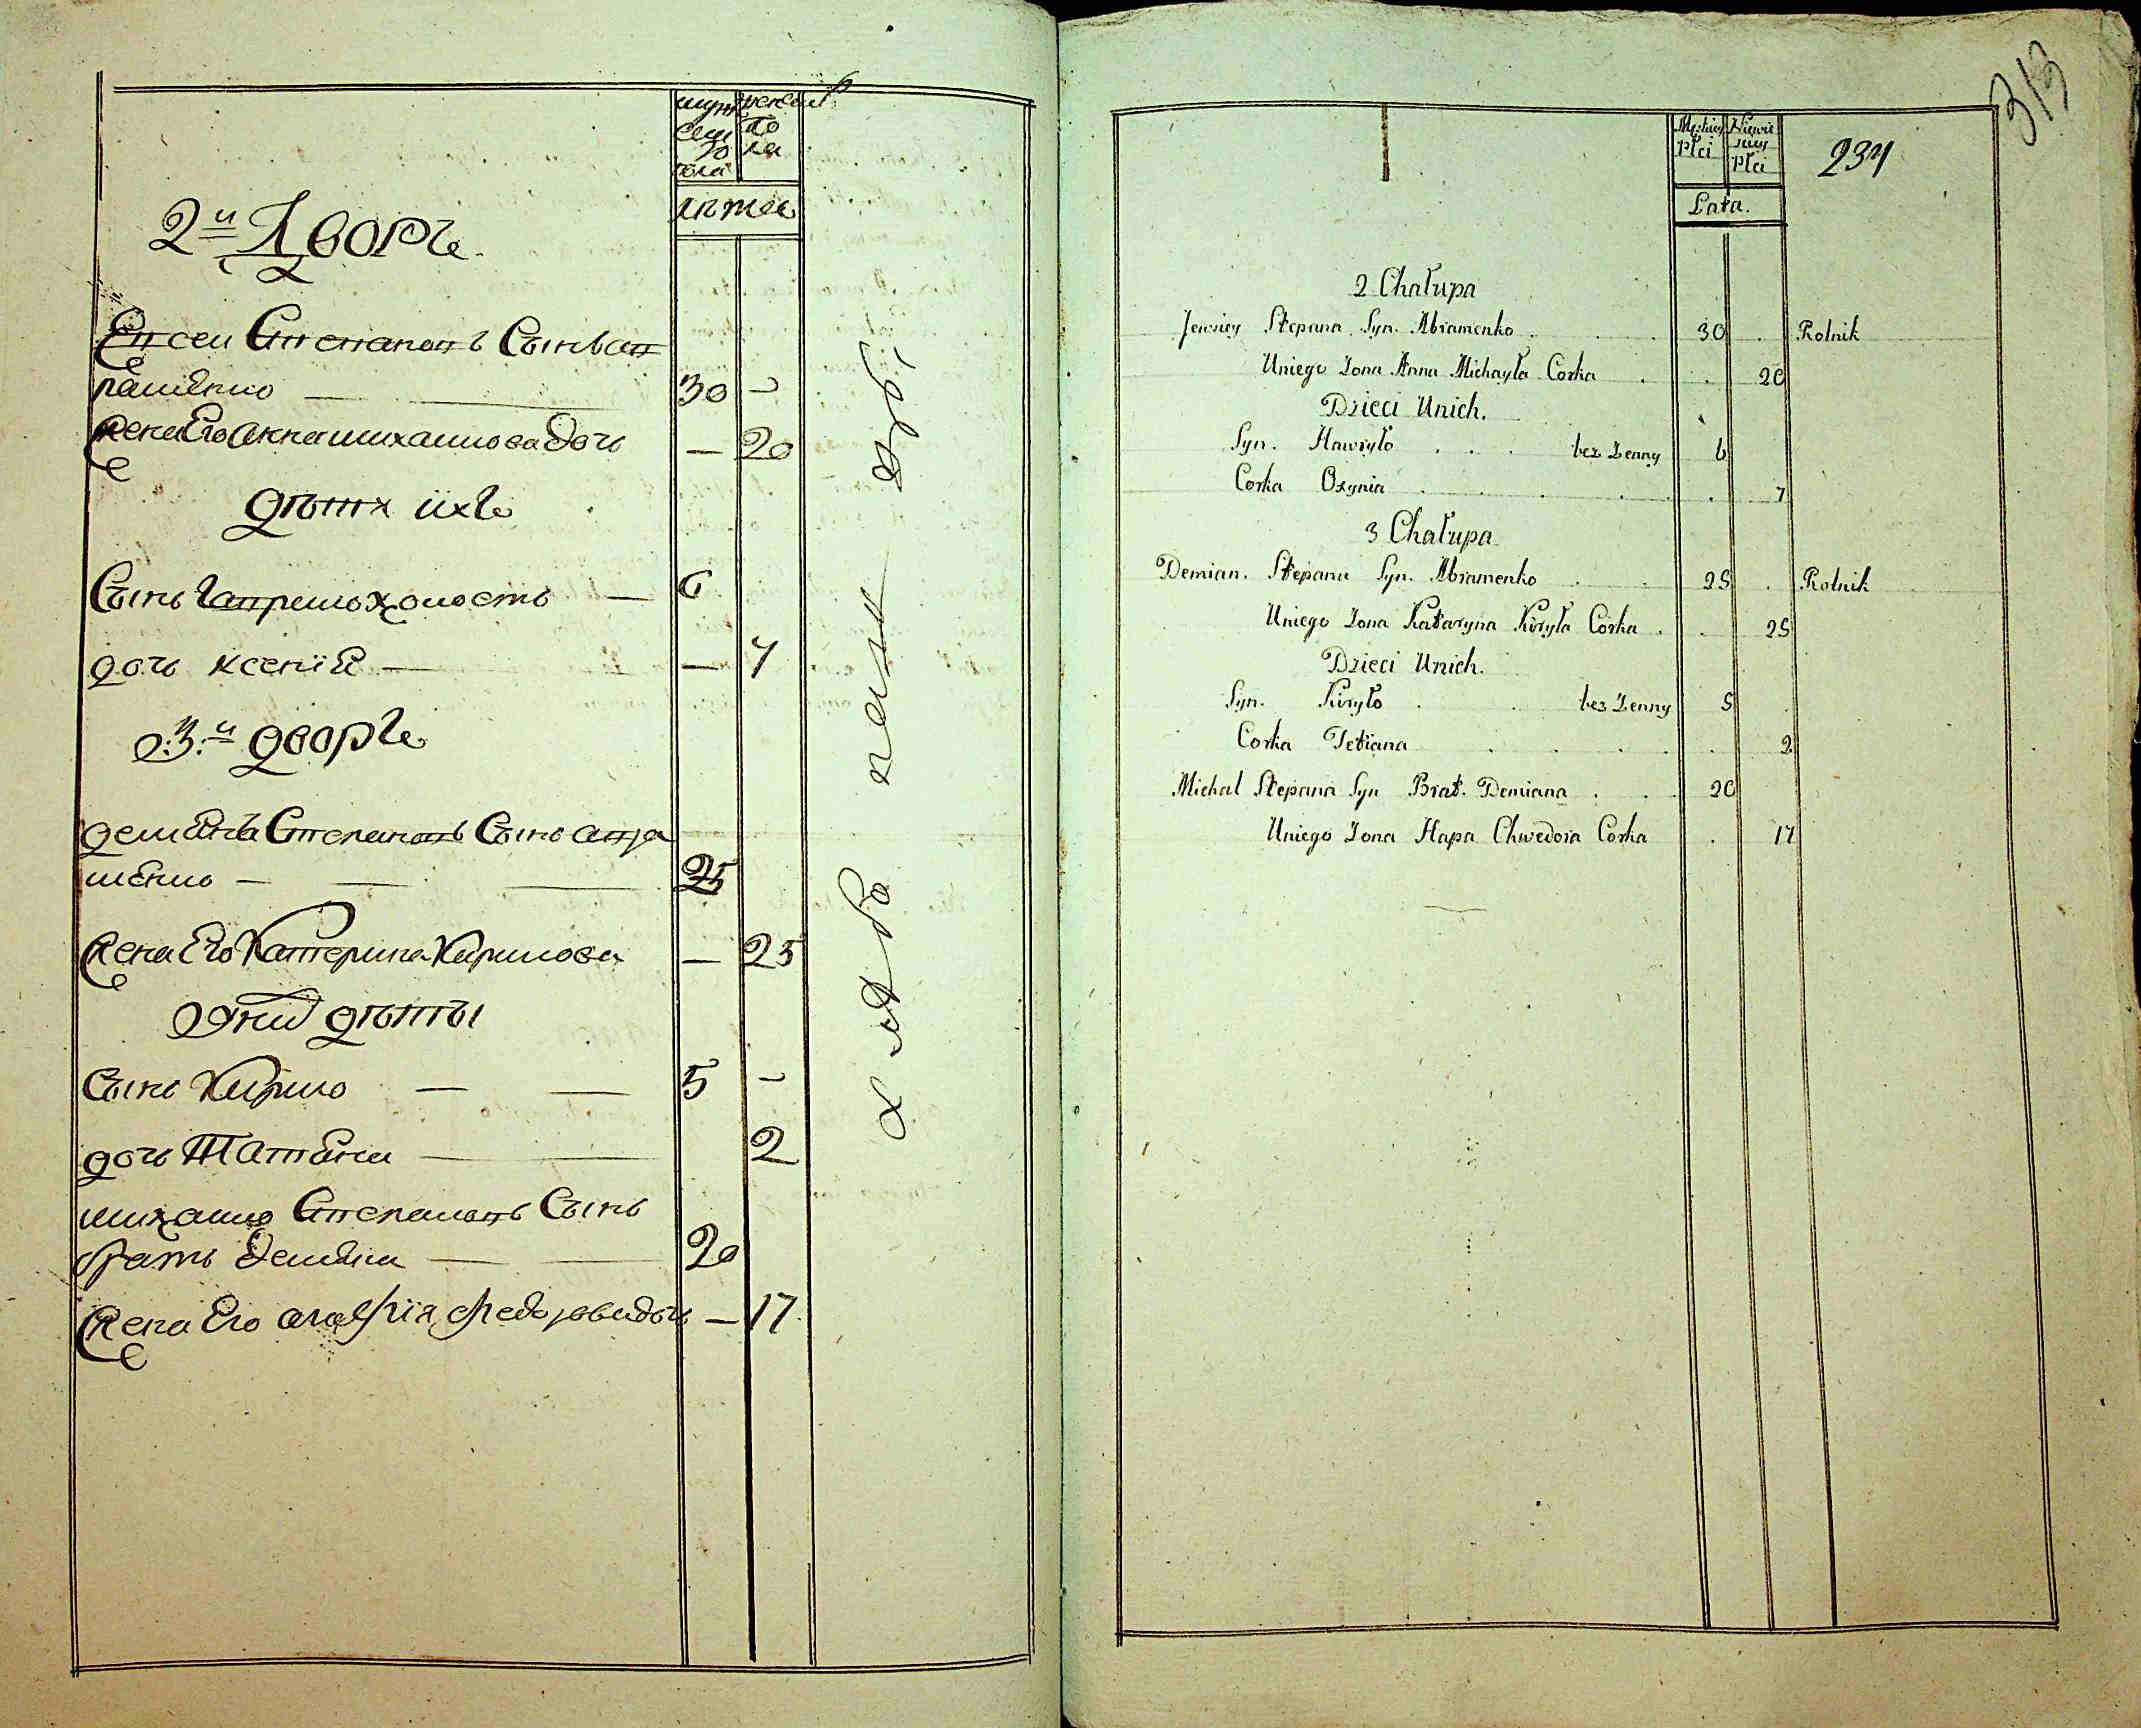 мужеска пола
женска пола
лѣтъ
2й Дворъ
Евсей Степановъ Сынъ ав
раменко 30
жена Его анна михаилова дочь 20
дѣти ихъ
Сынъ Гаврило холостъ 6
дочь ксенiя 7
3й дворъ
демянъ Степановъ Сынъ авра
менко 25
жена Его Катерина Кирилова 25
дѣты
Сынъ Кирило 5
дочь Татяна 2
михаило Степановъ Сынъ
братъ демяна 20
жена Его агафия федорова дочь 17
хлѣбо пашцѣ
313
234
Męskiey Płci
Niewieściey Płci
Lata.
2 Chałupa
Jewsiey Stepana Syn. Abramenko 30 Rolnik
Uniego Zona Anna Michayła Corka 20
Dzieci Unich.
Syn. Hawryło bez Zenny 6
Corka Oxynia 7
3 Chałupa
Demian. Stepana Syn. Abramenko 25 Rolnik
Uniego Zona Kataryna Kiryła Corka 25
Dzieci Unich.
Syn. Kiryło bez Zenny 5
Corka Tetiana 2
Michal Stepana Syn Brat. Demiana 20
Uniego Zona Hapa Chwedora Corka 17